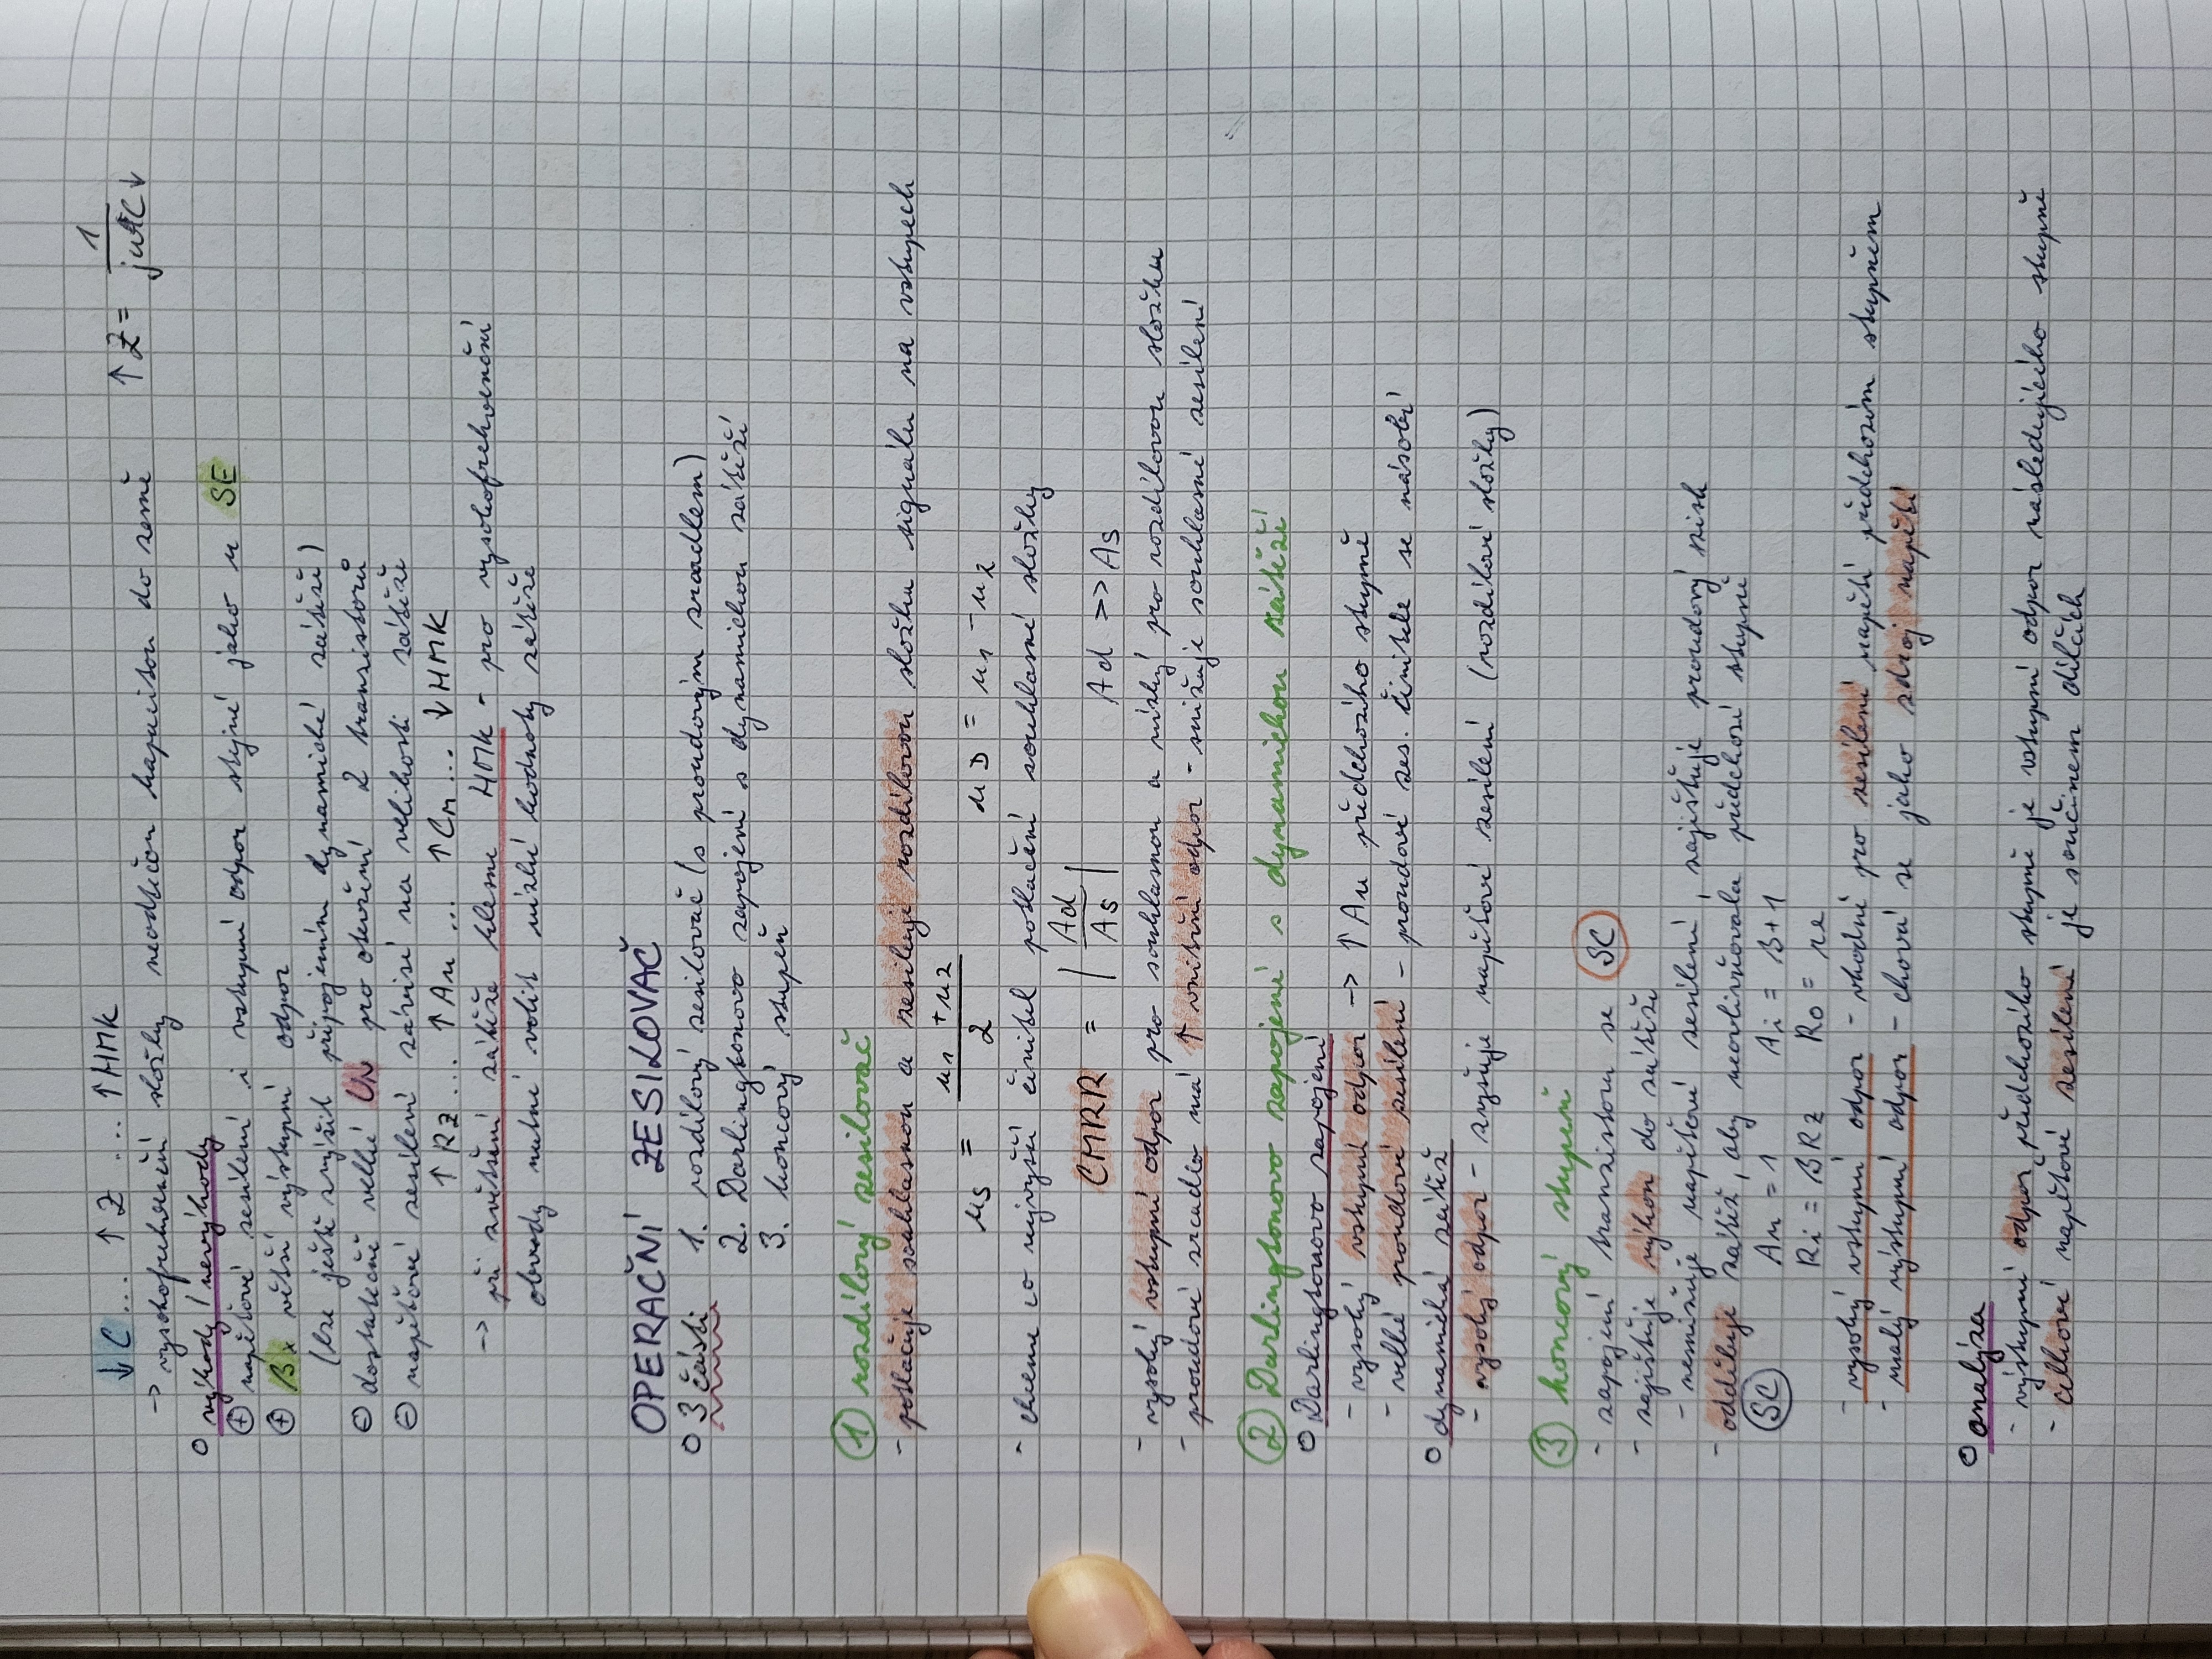 ↓C ... ↑Z .... ↑HMK ↑Z = 1/jωC↓
-> vysokofrekvenční složky neodtečou kapacitou do země
○ výhody / nevýhody
⊕ napěťové zesílení i vstupní odpor stejné jako u SE
⊕ βx větší výstupní odpor
(lze ještě zvýšit připojením dynamické zátěže)
⊖ dostatečně velké UN pro otevření 2 tranzistorů
⊖ napěťové zesílení závisí na velikosti zátěže
↑RZ ... ↑Au ... ↑CM ... ↓HMK
-> při zvětšení zátěže klesne HMK - pro vysokofrekvenční
obvody nutné volit nízké hodnoty zátěže
OPERAČNÍ ZESILOVAČ
○ 3 části 1. rozdílový zesilovač (s proudovým zrcadlem)
2. Darlingtonovo zapojení s dynamickou zátěží
3. koncový stupeň
① rozdílový zesilovač
- potlačuje souhlasnou a zesiluje rozdílovou složku signálu na vstupech
uS = (u1 + u2)/2 uD = u1 - u2
- chceme co nejvyšší činitel potlačení souhlasné složky
CMRR = |Ad/As| Ad >> As
- vysoký vstupní odpor pro souhlasnou a nízký pro rozdílovou složku
- proudové zrcadlo má ↑ vnitřní odpor - snižuje souhlasné zesílení
② Darlingtonovo zapojení s dynamickou zátěží
○ Darlingtonovo zapojení
- vysoký vstupní odpor -> ↑Au předchozího stupně
- velké proudové zesílení - proudové zes. činitele se násobí
○ dynamická zátěž
- vysoký odpor - zvyšuje napěťové zesílení (rozdílové složky)
③ koncový stupeň
- zapojení tranzistoru se SC
- zajišťuje výkon do zátěže
- nesnižuje napěťové zesílení, zajišťuje proudový zisk
- odděluje zátěž, aby neovlivňovala předchozí stupně
SC Au = 1 Ai = β+1
Ri = βRZ Ro = re
- vysoký vstupní odpor - vhodné pro zesílení napětí předchozím stupněm
- malý výstupní odpor - chová se jako zdroj napětí
○ analýza
- výstupní odpor předchozího stupně je vstupní odpor následujícího stupně
- celkové napěťové zesílení je součinem dílčích